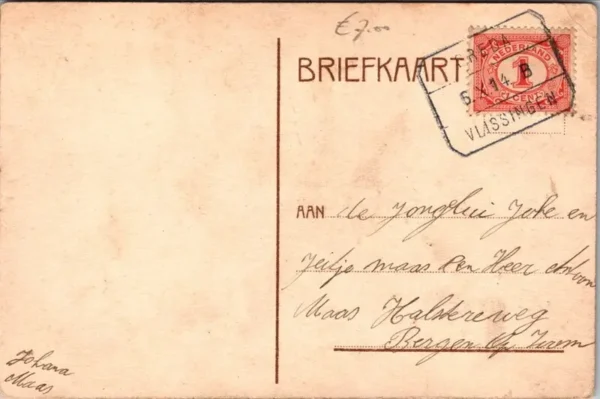 €7.00
BRIEFKAART
NEDERLAND
1
CENT
BREDA
6 X 14 B
VLISSINGEN
AAN de Jonglui Joke en
Jeiltje maas en Heer Antoon
Maas Halstereweg
Bergen Op Zoom
Johana
Maas